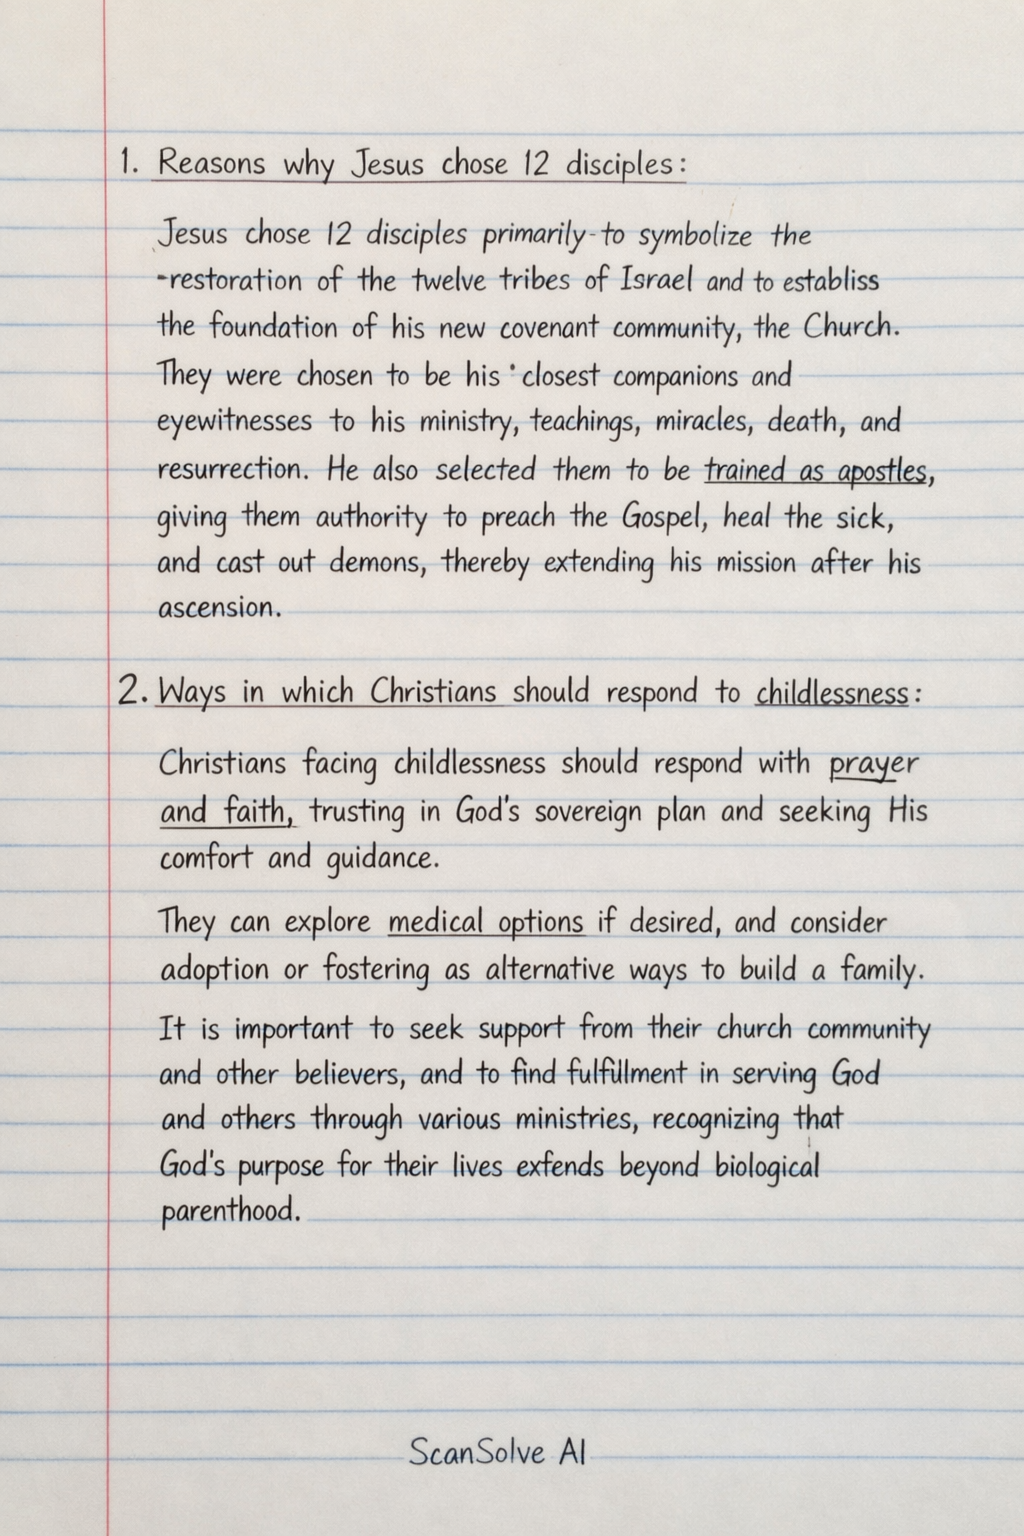 1. Reasons why Jesus chose 12 disciples:
Jesus chose 12 disciples primarily-to symbolize the
-restoration of the twelve tribes of Israel and to establiss
the foundation of his new covenant community, the Church.
They were chosen to be his closest companions and
eyewitnesses to his ministry, teachings, miracles, death, and
resurrection. He also selected them to be trained as apostles,
giving them authority to preach the Gospel, heal the sick,
and cast out demons, thereby extending his mission after his
ascension.
2. Ways in which Christians should respond to childlessness:
Christians facing childlessness should respond with prayer
and faith, trusting in God's sovereign plan and seeking His
comfort and guidance.
They can explore medical options if desired, and consider
adoption or fostering as alternative ways to build a family.
It is important to seek support from their church community
and other believers, and to find fulfillment in serving God
and others through various ministries, recognizing that
God's purpose for their lives exfends beyond biological
parenthood.
ScanSolve AI